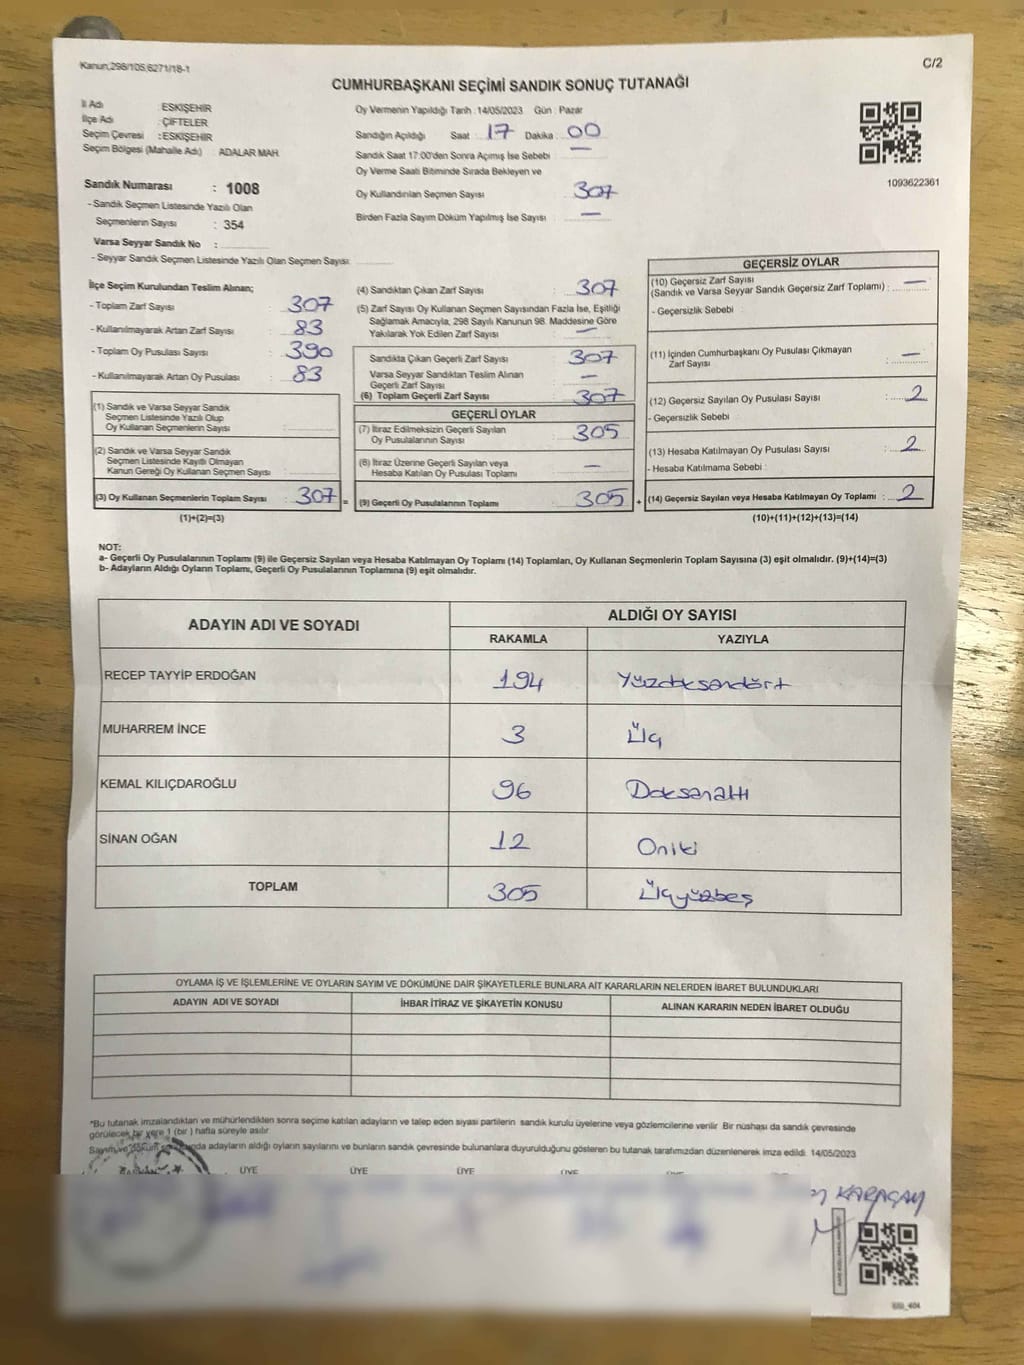 Kanun,298/105,6271/18-1
C/2
CUMHURBAŞKANI SEÇİMİ SANDIK SONUÇ TUTANAĞI
İl Adı : ESKİŞEHİR
İlçe Adı : ÇİFTELER
Seçim Çevresi : ESKİŞEHİR
Seçim Bölgesi (Mahalle Adı) : ADALAR MAH.
Sandık Numarası : 1008
- Sandık Seçmen Listesinde Yazılı Olan
Seçmenlerin Sayısı : 354
Varsa Seyyar Sandık No :
- Seyyar Sandık Seçmen Listesinde Yazılı Olan Seçmen Sayısı:
Oy Vermenin Yapıldığı Tarih : 14/05/2023 Gün : Pazar
Sandığın Açıldığı Saat : 17 Dakika : 00
Sandık Saat 17:00'den Sonra Açımış İse Sebebi : —
Oy Verme Saati Bitiminde Sırada Bekleyen ve
Oy Kullandırılan Seçmen Sayısı : 307
Birden Fazla Sayım Döküm Yapılmış İse Sayısı : —
1093622361
İlçe Seçim Kurulundan Teslim Alınan;
- Toplam Zarf Sayısı : 307
- Kullanılmayarak Artan Zarf Sayısı : 83
- Toplam Oy Pusulası Sayısı : 390
- Kullanılmayarak Artan Oy Pusulası : 83
(1) Sandık ve Varsa Seyyar Sandık
Seçmen Listesinde Yazılı Olup
Oy Kullanan Seçmenlerin Sayısı :
(2) Sandık ve Varsa Seyyar Sandık
Seçmen Listesinde Kayıtlı Olmayan
Kanun Gereği Oy Kullanan Seçmen Sayısı :
(3) Oy Kullanan Seçmenlerin Toplam Sayısı : 307 =
(1)+(2)=(3)
(4) Sandıktan Çıkan Zarf Sayısı : 307
(5) Zarf Sayısı Oy Kullanan Seçmen Sayısından Fazla İse, Eşitliği
Sağlamak Amacıyla, 298 Sayılı Kanunun 98. Maddesine Göre
Yakılarak Yok Edilen Zarf Sayısı : —
Sandıkta Çıkan Geçerli Zarf Sayısı : 307
Varsa Seyyar Sandıktan Teslim Alınan
Geçerli Zarf Sayısı : —
(6) Toplam Geçerli Zarf Sayısı : 307
GEÇERLİ OYLAR
(7) İtiraz Edilmeksizin Geçerli Sayılan
Oy Pusulalarının Sayısı : 305
(8) İtiraz Üzerine Geçerli Sayılan veya
Hesaba Katılan Oy Pusulası Toplamı : —
(9) Geçerli Oy Pusulalarının Toplamı : 305 +
GEÇERSİZ OYLAR
(10) Geçersiz Zarf Sayısı
(Sandık ve Varsa Seyyar Sandık Geçersiz Zarf Toplamı) : —
- Geçersizlik Sebebi :
(11) İçinden Cumhurbaşkanı Oy Pusulası Çıkmayan
Zarf Sayısı : —
(12) Geçersiz Sayılan Oy Pusulası Sayısı : 2
- Geçersizlik Sebebi :
(13) Hesaba Katılmayan Oy Pusulası Sayısı : 2
- Hesaba Katılmama Sebebi :
(14) Geçersiz Sayılan veya Hesaba Katılmayan Oy Toplamı : 2
(10)+(11)+(12)+(13)=(14)
NOT:
a- Geçerli Oy Pusulalarının Toplamı (9) ile Geçersiz Sayılan veya Hesaba Katılmayan Oy Toplamı (14) Toplamları, Oy Kullanan Seçmenlerin Toplam Sayısına (3) eşit olmalıdır. (9)+(14)=(3)
b- Adayların Aldığı Oyların Toplamı, Geçerli Oy Pusulalarının Toplamına (9) eşit olmalıdır.
ADAYIN ADI VE SOYADI ALDIĞI OY SAYISI
RAKAMLA YAZIYLA
RECEP TAYYİP ERDOĞAN 194 Yüzdoksandört
MUHARREM İNCE 3 Üç
KEMAL KILIÇDAROĞLU 96 Doksanaltı
SİNAN OĞAN 12 Oniki
TOPLAM 305 Üçyüzbeş
OYLAMA İŞ VE İŞLEMLERİNE VE OYLARIN SAYIM VE DÖKÜMÜNE DAİR ŞİKAYETLERLE BUNLARA AİT KARARLARIN NELERDEN İBARET BULUNDUKLARI
ADAYIN ADI VE SOYADI İHBAR İTİRAZ VE ŞİKAYETİN KONUSU ALINAN KARARIN NEDEN İBARET OLDUĞU
*Bu tutanak imzalandıktan ve mühürlendikten sonra seçime katılan adayların ve talep eden siyasi partilerin sandık kurulu üyelerine veya gözlemcilerine verilir. Bir nüshası da sandık çevresinde
görülecek bir yere 1 (bir ) hafta süreyle asılır.
Sayım ve döküm adayların aldığı oyların sayılarını ve bunların sandık çevresinde bulunanlara duyurulduğunu gösteren bu tutanak tarafımızdan düzenlenerek imza edildi. 14/05/2023
ÜYE ÜYE ÜYE
KARAÇAY